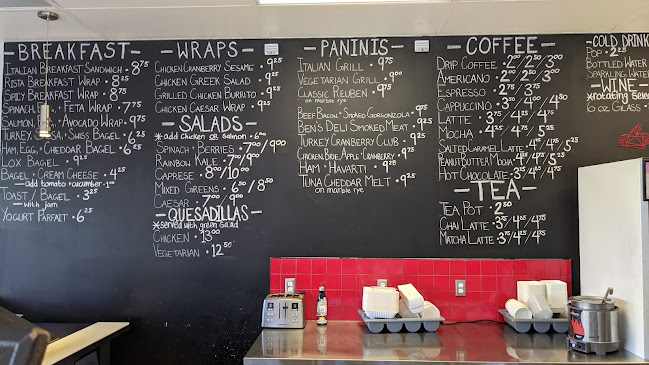 BREAKFAST
ITALIAN BREAKFAST SANDWICH • 8.75
RISTA BREAKFAST WRAP • 8.75
SPICY BREAKFAST WRAP • 8
SPINACH, EGG, FETA WRAP • 7.75
SALMON, AVOCADO WRAP • 9.75
TURKEY, SWISS BAGEL • 6.25
HAM, EGG, CHEDDAR BAGEL • 6.25
LOX BAGEL • 9.25
BAGEL + CREAM CHEESE • 4.25
add tomato + cucumber
TOAST / BAGEL • 3.25
with jam
YOGURT PARFAIT • 6.25
WRAPS
CHICKEN CRANBERRY SESAME • 9.25
CHICKEN GREEK SALAD • 9.25
GRILLED CHICKEN BURRITO • 9.25
CHICKEN CAESAR WRAP • 9.25
SALADS
*add chicken or salmon • 6.00
SPINACH + BERRIES • 7.00/9.00
RAINBOW KALE • 7.00/9.00
CAPRESE • 8.00/10.00
MIXED GREENS • 6.50/8.50
CAESAR • 7.00/9.00
QUESADILLAS
*served with green salad
CHICKEN • 13.00
VEGETARIAN • 12.50
PANINIS
ITALIAN GRILL • 9.75
VEGETARIAN GRILL • 9.00
CLASSIC REUBEN • 9.75
on marble rye
BEEF BACON + SMOKED GORGONZOLA • 9.75
BEN'S DELI SMOKED MEAT • 9.75
TURKEY CRANBERRY CLUB • 9.75
CHICKEN BRIE APPLE CRANBERRY • 9.75
HAM + HAVARTI • 9.25
TUNA CHEDDAR MELT • 9.25
on marble rye
COFFEE
DRIP COFFEE • 2.00/2.50/3.00
AMERICANO • 2.50/3.00/3.50
ESPRESSO • 2.75/3.25
CAPPUCCINO • 3.50/4.25/4.75
LATTE • 3.75/4.25/4.75
MOCHA • 4.25/4.75/5.25
SALTED CARAMEL LATTE • 4.25/4.75/5.25
PEANUT BUTTER MOCHA • 4.25/4.75/5.25
HOT CHOCOLATE • 3.75/4.25/4.75
TEA
TEA POT • 2.50
CHAI LATTE • 3.75/4.25/4.75
MATCHA LATTE • 3.75/4.25/4.75
COLD DRINK
POP • 2.25
BOTTLED WATER
SPARKLING WATER
WINE
*rotating selec
6 oz GLASS